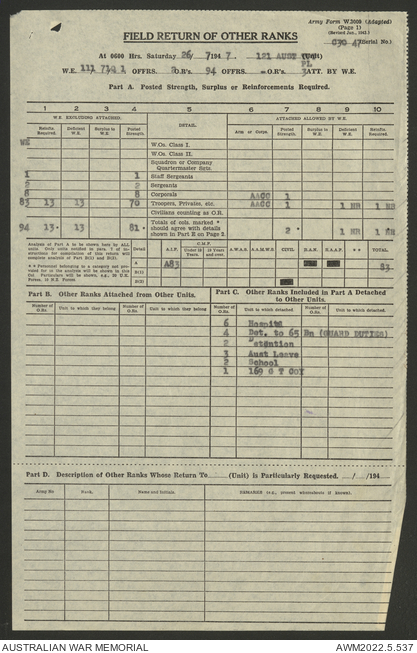 Army Form W.3009 (Adapted)
(Page 1)
(Revised Jan., 1945.)
C30 47 (Serial No.)
FIELD RETURN OF OTHER RANKS
At 0600 Hrs. Saturday 26/ 7/194 7. 121 AUST (Unit)
PL
W.E. 111 719 1 OFFRS. O.R's. 94 OFFRS. = O.R's. 3 ATT. BY W.E.
Part A. Posted Strength, Surplus or Reinforcements Required.
1 2 3 4 5 6 7 8 9 10
W.E. EXCLUDING ATTACHED. DETAIL. ATTACHED ALLOWED BY W.E.
Reinfts Required. Deficient W.E. Surplus to W.E. Posted Strength. Arm or Corps. Posted Strength. Surplus to W.E. Deficient W.E. Reinfts Required.
WE W.Os. Class I.
W.Os. Class II.
Squadron or Company
Quartermaster Sets.
1 1 Staff Sergeants
2 2 Sergeants
8 8 Corporals AACC 1
83 13 13 70 Troopers, Privates, etc. AACC 1 1 NR 1 NR
Civilians counting as O.R.
94 13 13 81 Totals of cols. marked * should agree with details shown in Part E on Page 2. 2 1 NR 1 NR
Analysis of Part A to be shown here by ALL units.
Detail A.I.F. C.M.F. Under 19 Years. 19 Years and over. A.W.A.S. A.A.M.W.S. CIVIL R.A.N. R.A.A.F. * * TOTAL.
A A83 83
B(i)
B(ii)
Part B. Other Ranks Attached from Other Units. Part C. Other Ranks Included in Part A Detached to Other Units.
Number of O.Rs. Unit to which they belong Number of O.Rs. Unit to which they belong Number of O.Rs. Unit to which detached. Number of O.Rs. Unit to which detached.
6 Hospital
4 Det. to 65 Bn (GUARD DUTIES)
2 Detention
3 Aust Leave
2 School
1 169 G T COY
Part D. Description of Other Ranks Whose Return To (Unit) is Particularly Requested. / /194
Army No Rank. Name and Initials. REMARKS (e.g., present whereabouts if known).
AUSTRALIAN WAR MEMORIAL AWM2022.5.537